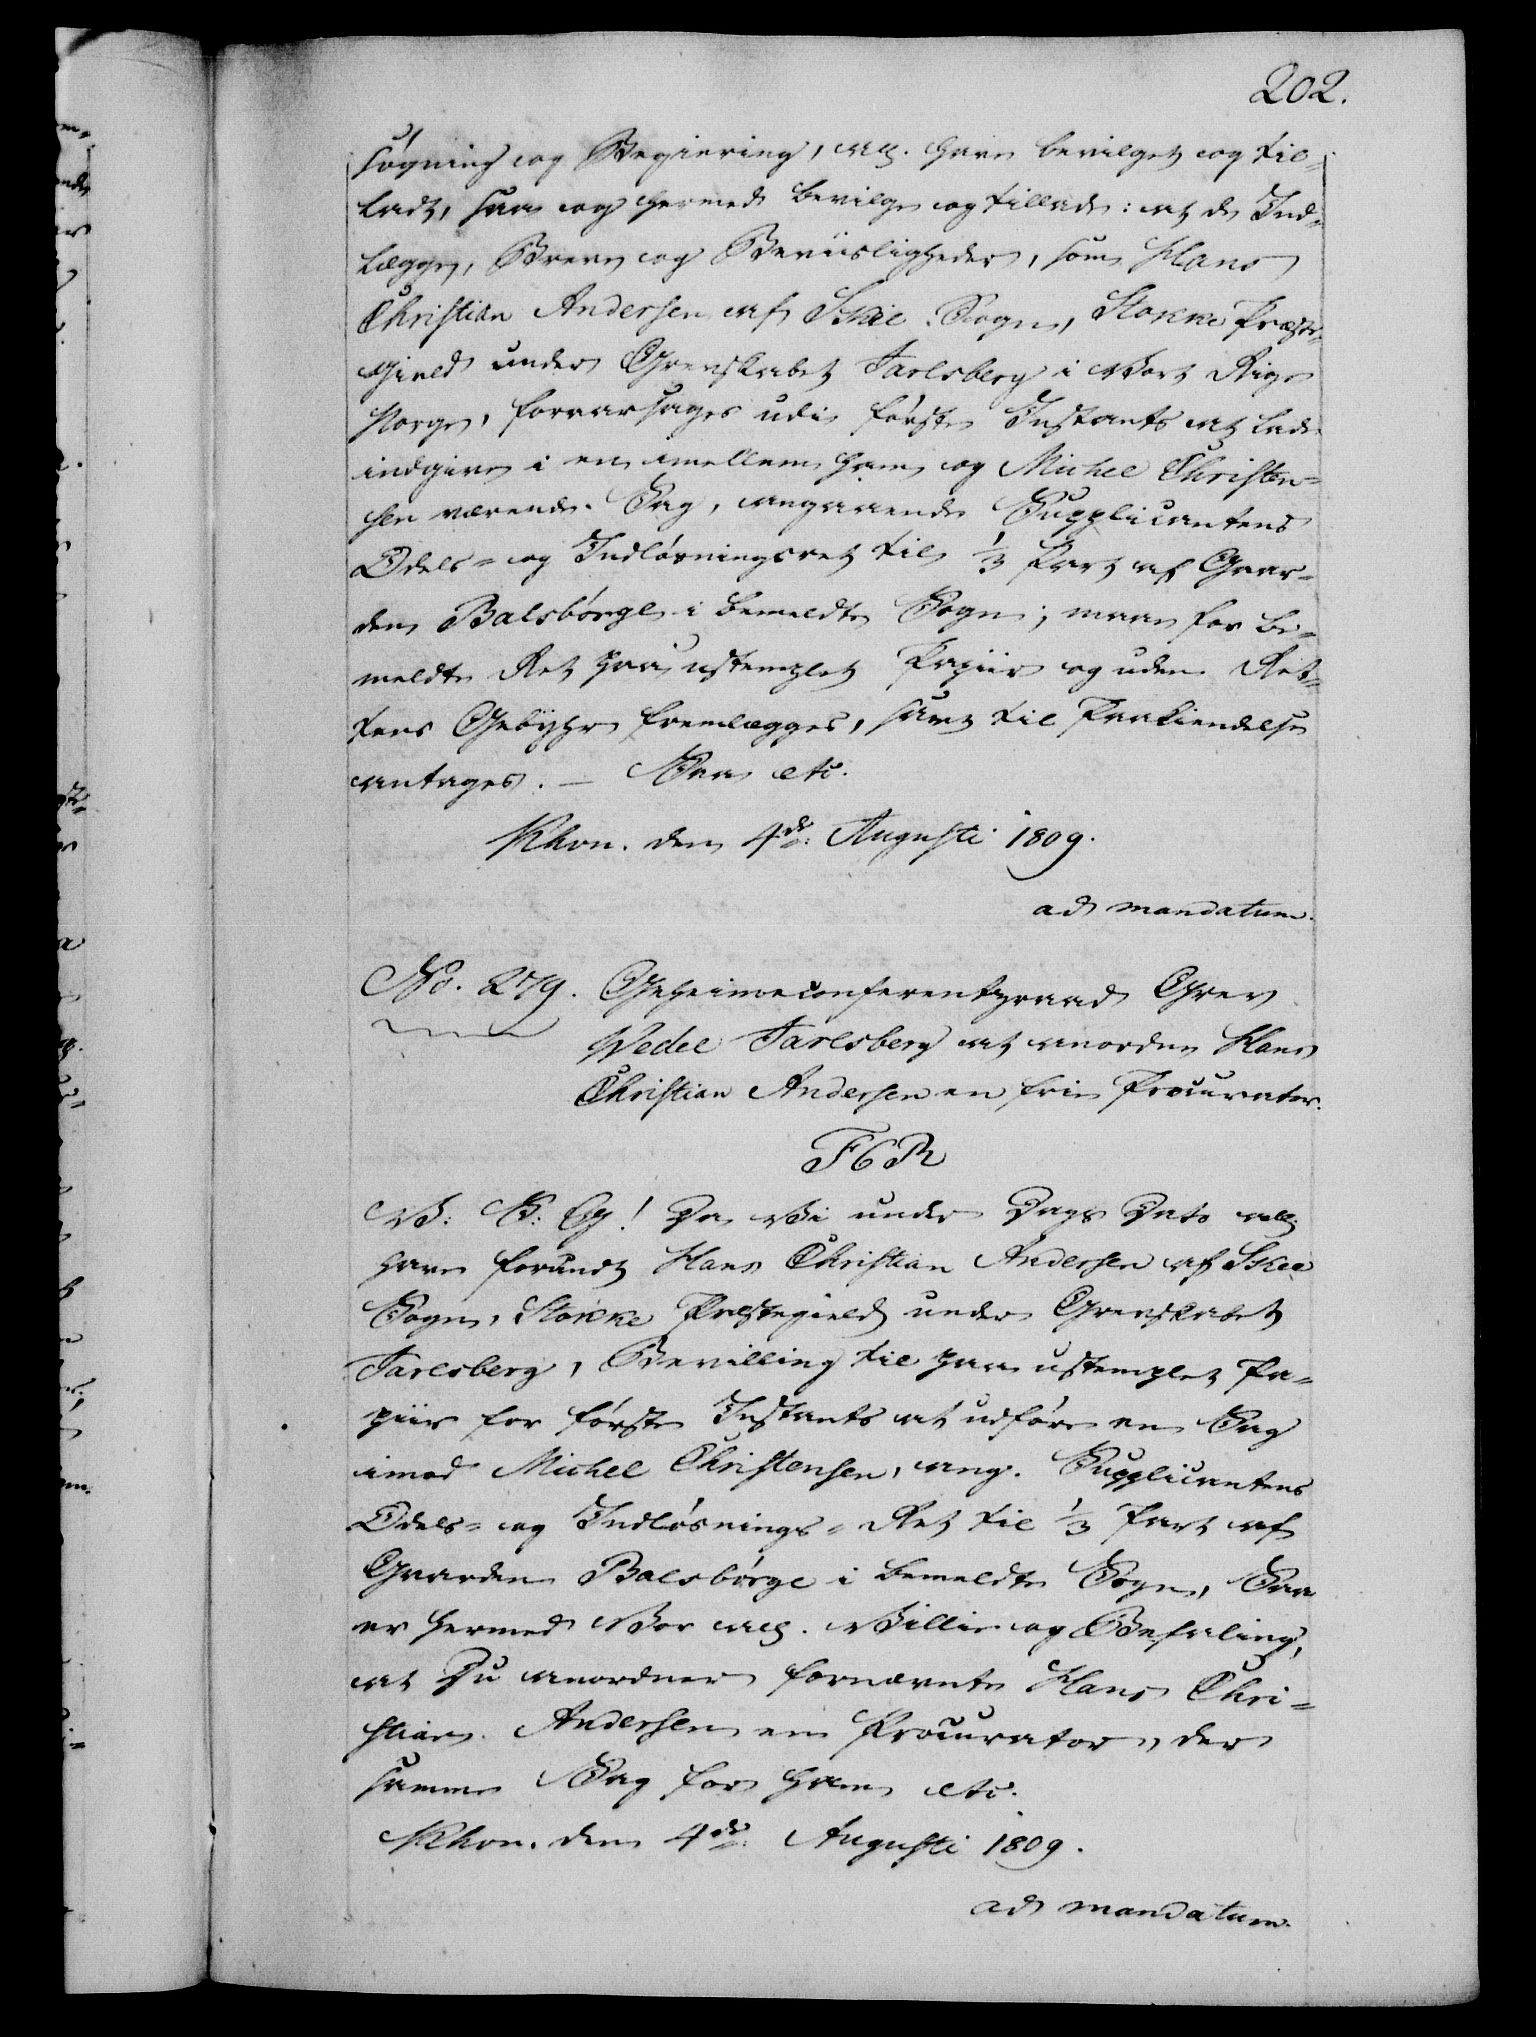 202.
søgning og Begiering, all. have bevilget og til-
ladt, saa og hermed bevilge og tillade: at de Ind-
lægge, Breve og Beviisligheder, som Hans
Christian Andersen af Skee Sogn, Stokke Præste-
gield under Grevskabet Jarlsberg i Vort Rige
Norge, foraarsages udi første Instants at lade
indgive i en imellem ham og Michel Christen-
sen værende Sag, angaaende Supplicantens
Odels- og Indløsningsret til 1/3 Part af Gaar-
den Balsbørge i bemeldte Sogn; maae for be-
meldte Ret paa ustemplet Papiir og uden Ret-
tens Gebyhr fremlægges, samt til Paakiendelse
antages. — Naar etc.
Khvn. den 4de Augusti 1809.
ad mandatum.
No. 279. Geheimeconferentsraad Grev
Wedel Jarlsberg at anordne Hans
Christian Andersen en frie Procurator.
F6R
V: G: T! Da Vi under Dags Dato all.
have forundt Hans Christian Andersen af Skee
Sogn, Stokke Præstegield under Grevskabet
Jarlsberg, Bevilling til paa ustemplet Pa-
piir for første Instants at udføre en Sag
imod Michel Christensen, ang. Supplicantens
Odels- og Indløsnings-Ret til 1/3 Part af
Gaarden Balsbørge i bemeldte Sogn, Saa
er hermed Vor all. Villie og Befaling,
at Du anordner fornævnte Hans Chri-
stian Andersen en Procurator, der
samme Sag for ham etc.
Khvn. den 4de Augusti 1809.
ad mandatum.